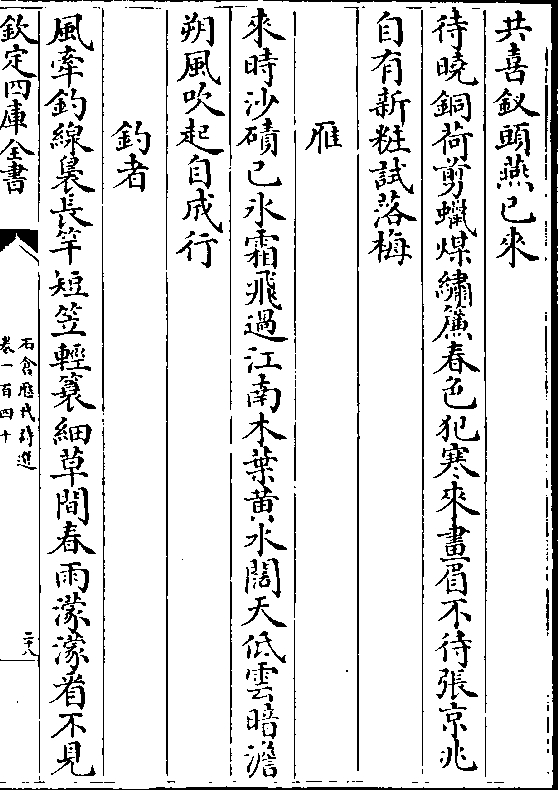 共喜釵頭燕已來
待曉銅荷剪蠟煤繡簾春色犯寒來畫眉不待張京兆
自有新粧試落梅
雁
來時沙磧已氷霜飛過江南木葉黄水闊天低雲暗澹
朔風吹起自成行
釣者
風牽釣線裊長竿短笠輕簑細草間春雨濛濛看不見
欽定四庫全書
石倉歴代詩選
卷一百四十
二十八